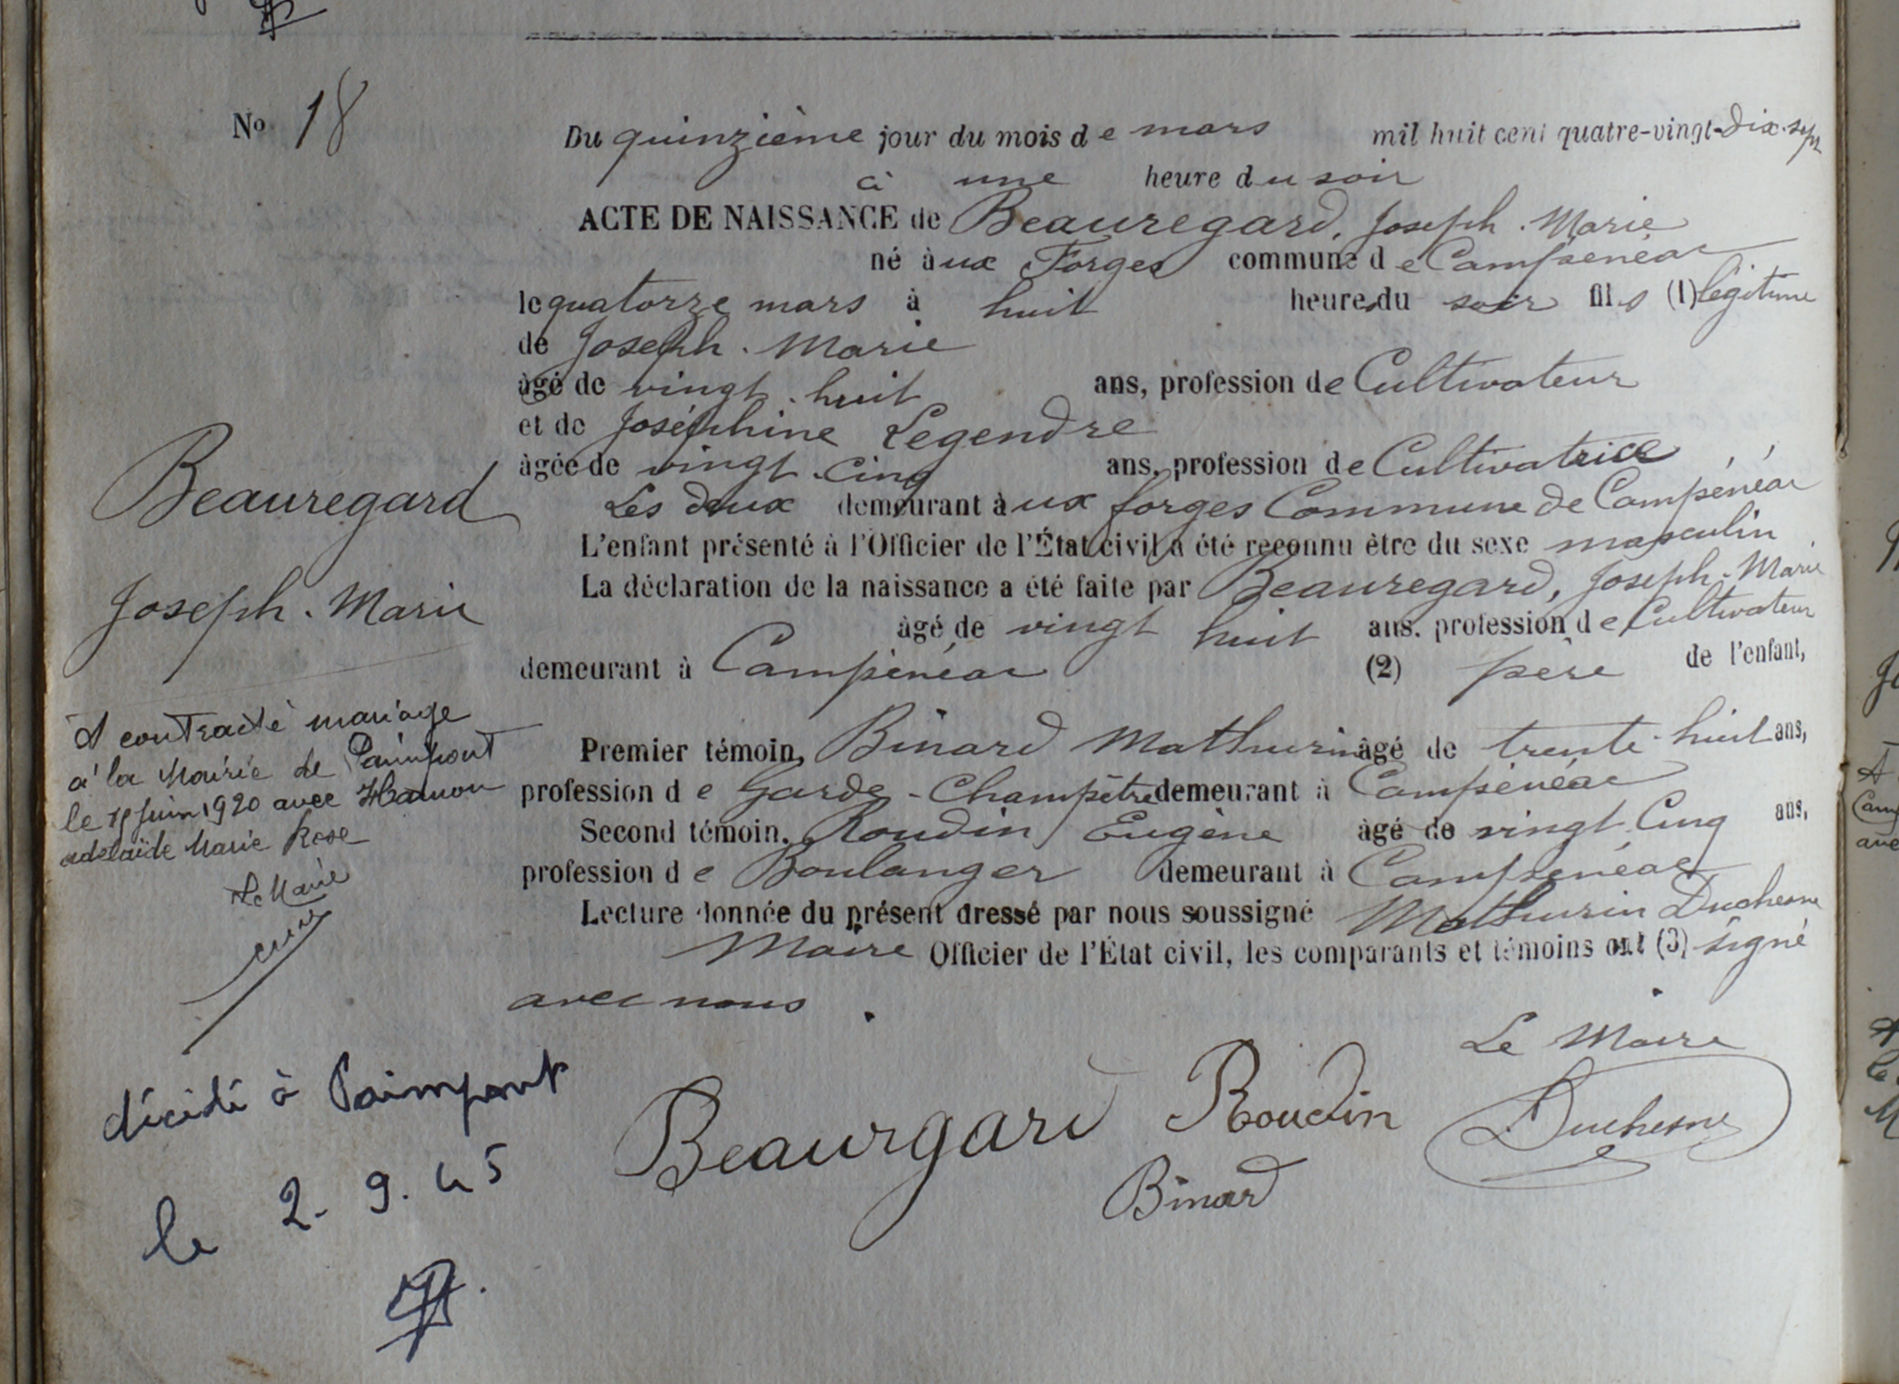 No 18
Du quinzième jour du mois de mars mil huit cent quatre-vingt-Dix-sept
à une heure du soir
ACTE DE NAISSANCE de Beauregard, Joseph. Marie
né à ux Forges commune de Campénéac
le quatorze mars à huit heures du soir fils (1) légitime
de Joseph. Marie
âgé de vingt. huit ans, profession de Cultivateur
et de Joséphine Legendre
âgée de vingt-cinq ans, profession de Cultivatrice
Les deux demeurant à ux forges Commune de Campénéac
L'enfant présenté à l'Officier de l'État civil a été reconnu être du sexe masculin
La déclaration de la naissance a été faite par Beauregard, Joseph-Marie
âgé de vingt huit ans, profession de Cultivateur
demeurant à Campénéac (2) père de l'enfant,
Premier témoin, Binard Mathurin âgé de trente-huit ans,
profession de Garde-Champêtre demeurant à Campénéac
Second témoin, Roudin Eugène âgé de vingt Cinq ans,
profession de Boulanger demeurant à Campénéac
Lecture donnée du présent dressé par nous soussigné Mathurin Duchesne
Maire Officier de l'État civil, les comparants et témoins ont (3) signé
avec nous.
Le Maire
Beaurgard Roudin Duchesne
Binard
Beauregard
Joseph. Marie
A contracté mariage
à la Mairie de Paimpont
le juin 1920 avec Hamon
adelaïde Marie Rose
Le Maire
décédé à Paimpont
le 2-9.45